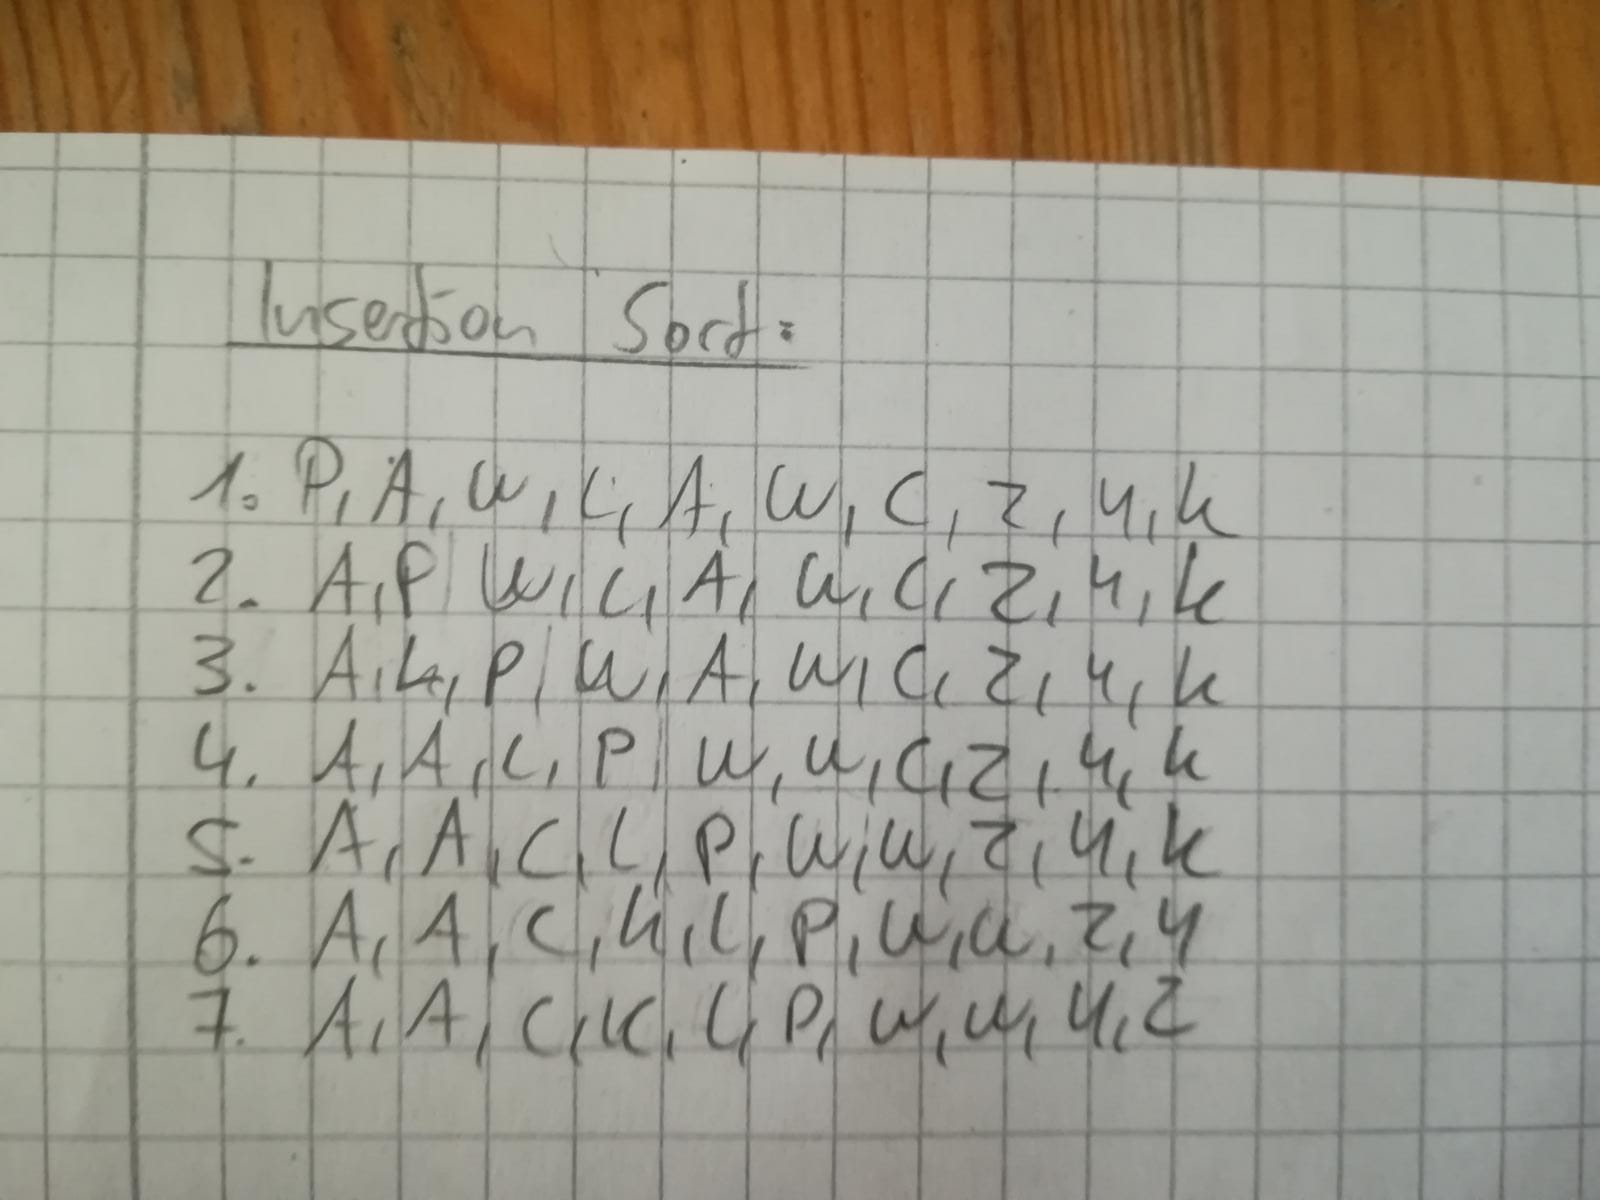 Insertion Sort:
1. P, A, W, L, A, W, C, Z, Y, K
2. A, P | W, L, A, W, C, Z, Y, K
3. A, L, P | W, A, W, C, Z, Y, K
4. A, A, L, P | W, W, C, Z, Y, K
5. A, A, C, L, P, W, W, Z, Y, K
6. A, A, C, K, L, P, W, W, Z, Y
7. A, A, C, K, L, P, W, W, Y, Z